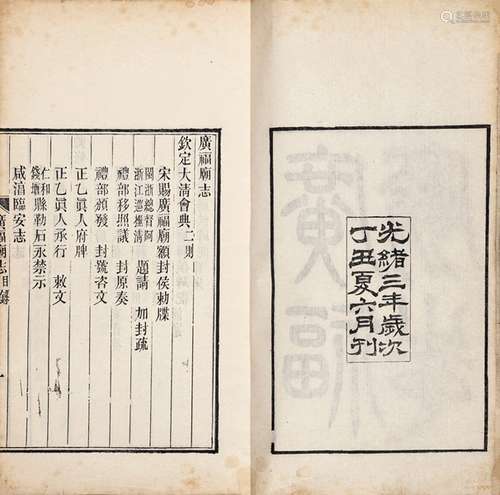 光緒三年歲次
丁丑夏六月刊
廣福廟志
欽定大清會典二則
宋賜廣福廟額封侯勅牒
閩浙總督阿
浙江巡撫清
題請 加封疏
禮部移照議 封原奏
禮部頒發 封號咨文
正乙眞人府牌
正乙眞人承行 敕文
仁和
錢塘縣勒石永禁示
咸淳臨安志
廣福廟志目錄
一